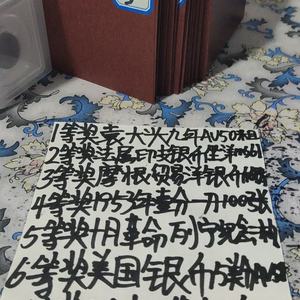 1等奖袁大头九年AU50
2等奖法属印支银币坐洋
3等奖摩根贸易洋银币
4等奖1953年壹分一刀100张
5等奖十月革命列宁纪念
6等奖美国银币5